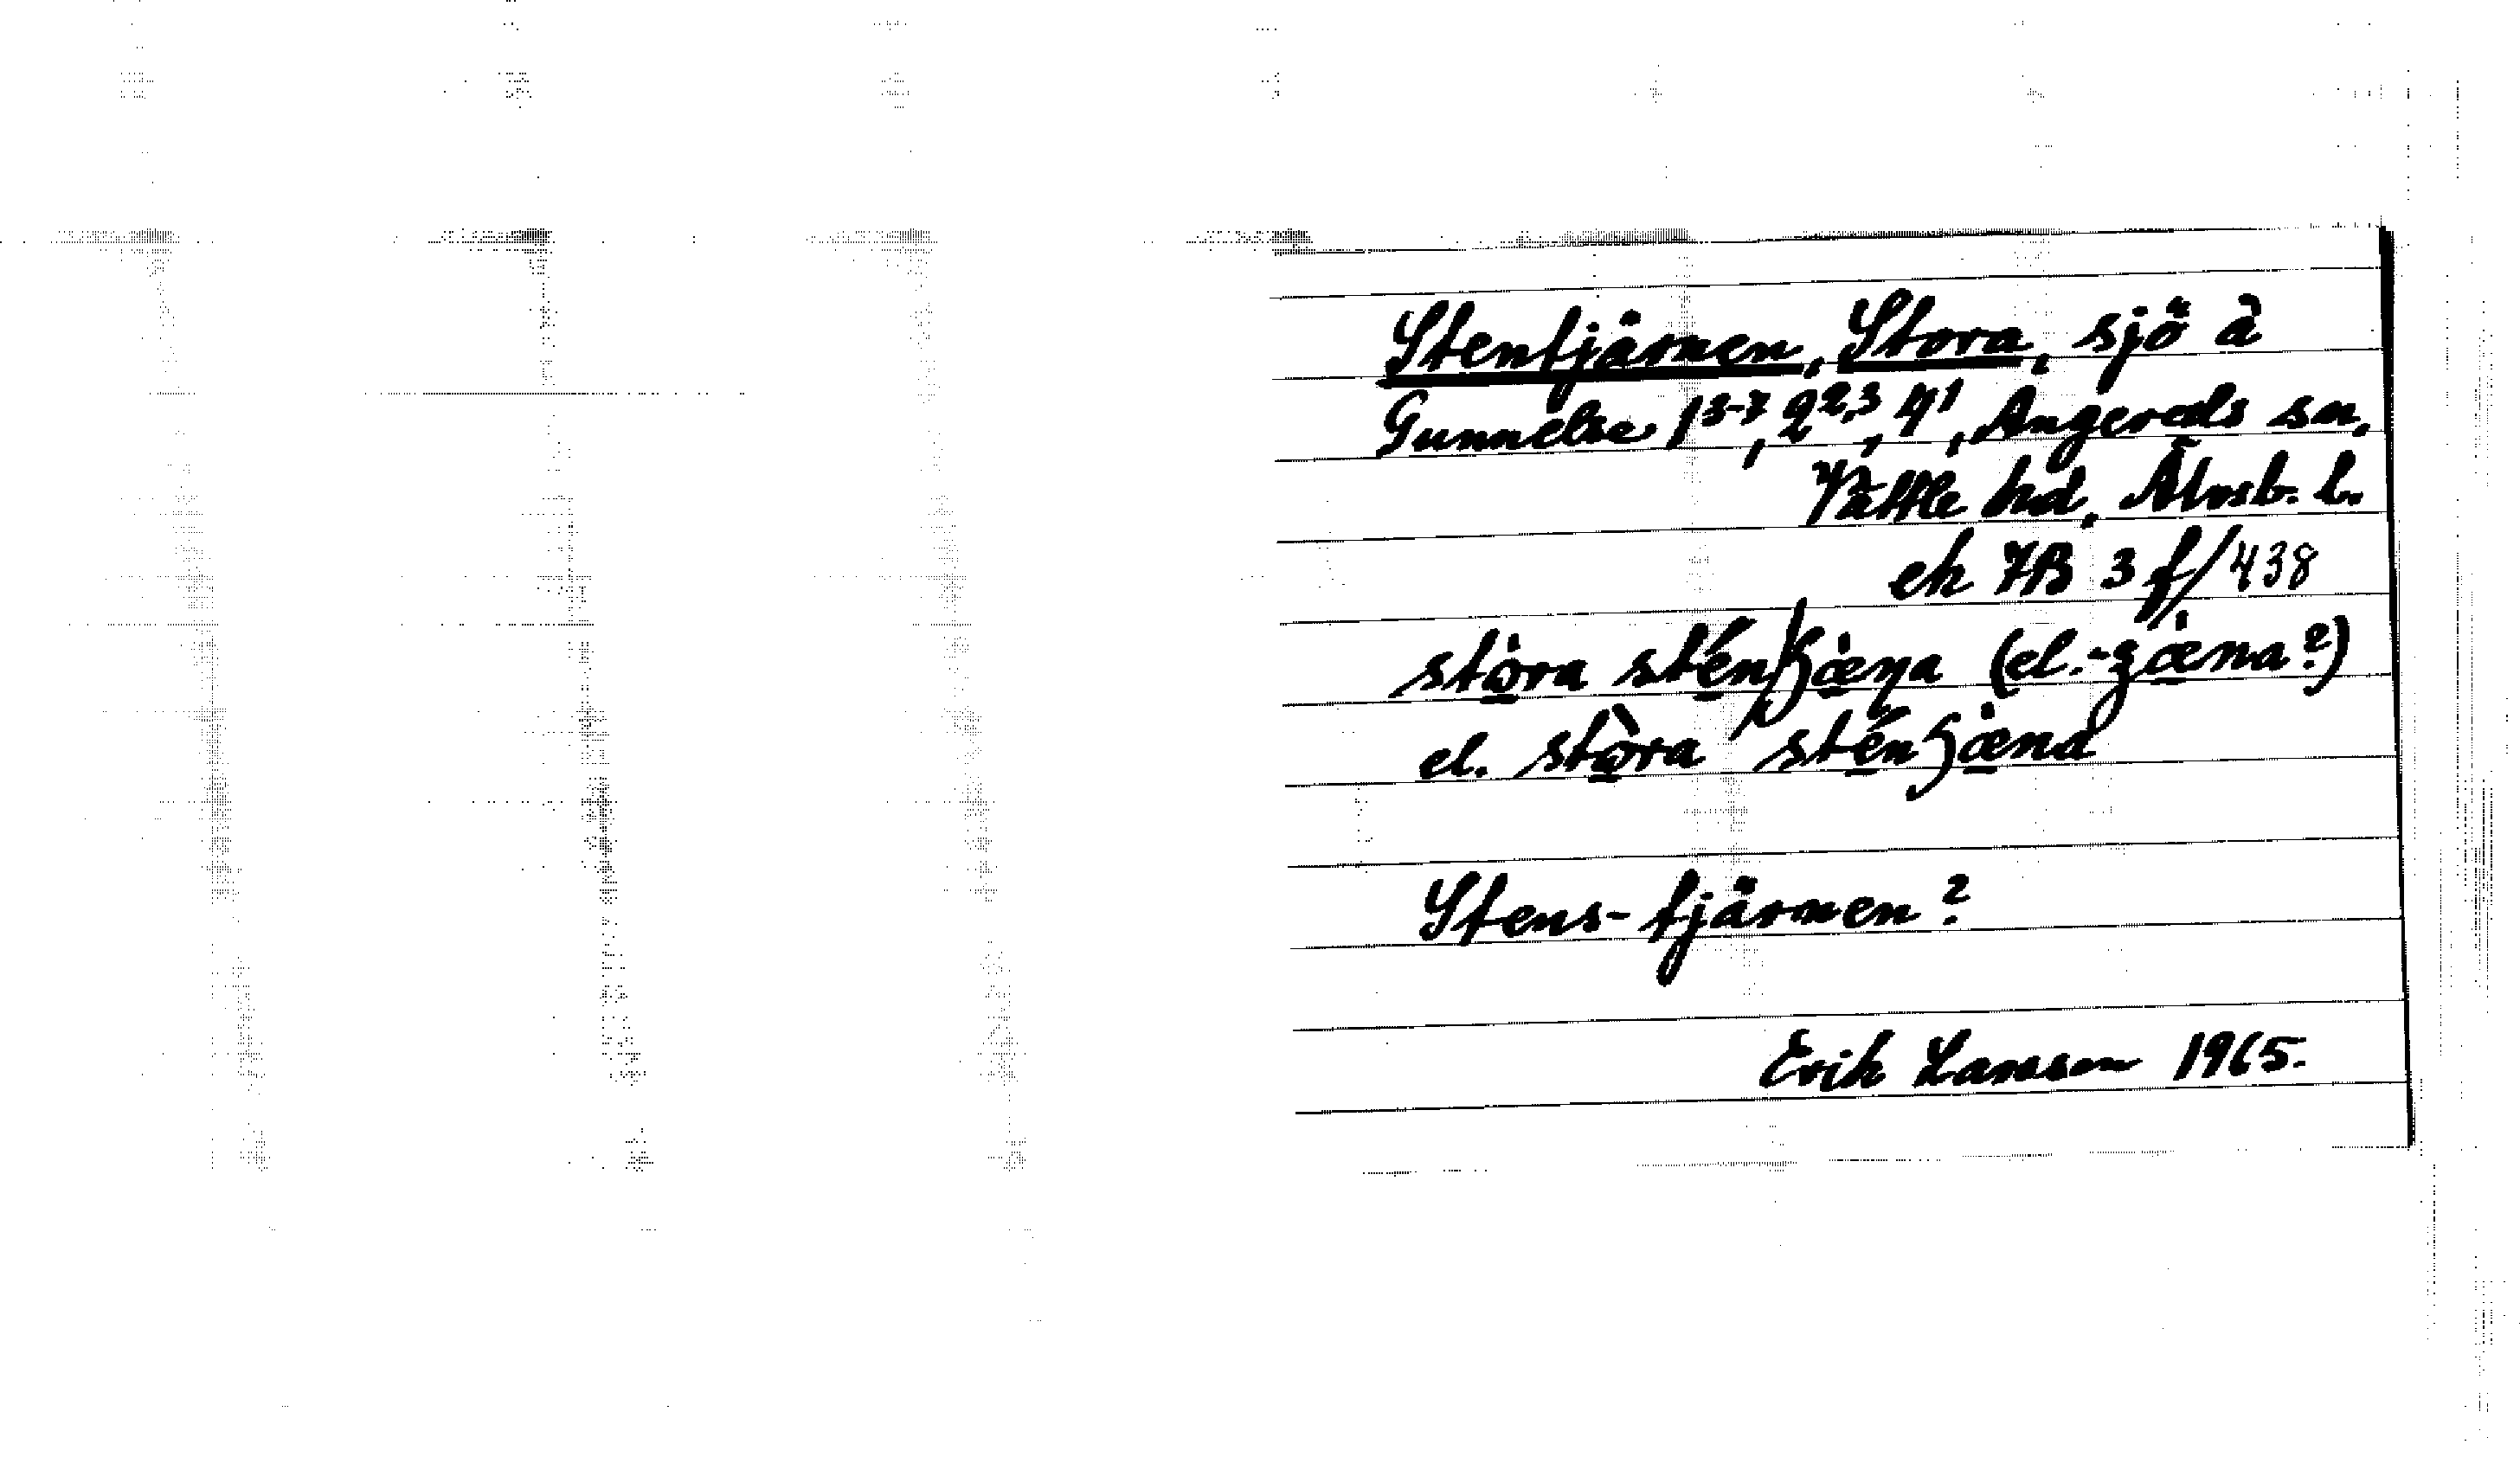 Stentjärnen, Stora, sjö å
Gunnelse 1³⁻⁷, 2²,³, 4¹, Angereds sn,
Vättle hd, Älvsb. l.
ek 7B 3 f/438
stòra sténʃæ̀ɳa (el. -ʒæ̀na?)
el. stòra sténʃæ̀na
Stens-tjärnen?
Erik Larsson 1965.